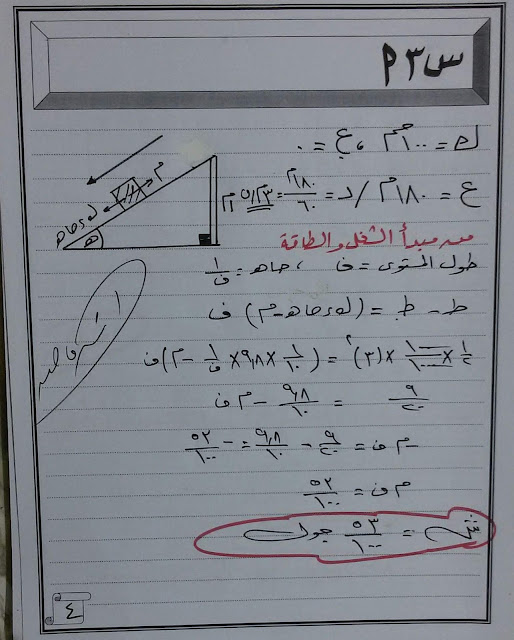 س٣ م
ك = ١٠٠جم ، ع٠ = ٠
ع = ١٨٠م/د = ١٨٠م/٦٠ = ٣م/ث
١م
م
ك ء جا هـ
هـ
من مبدأ الشغل والطاقة
طول المستوى = ف ، جا هـ = ١/ف
ط - ط٠ = (ك ء جا هـ - م) ف
١/٢ × ١٠٠/١٠٠٠ × (٣)٢ = (١/١٠ × ٩,٨ × ١/ف - م) ف
٩/٢٠ = ٩,٨/١٠ - م ف
- م ف = ٩/٢٠ - ٩,٨/١٠ = - ٥٣/١٠٠
م ف = ٥٣/١٠٠
ش = ٥٣/١٠٠ جول
٤